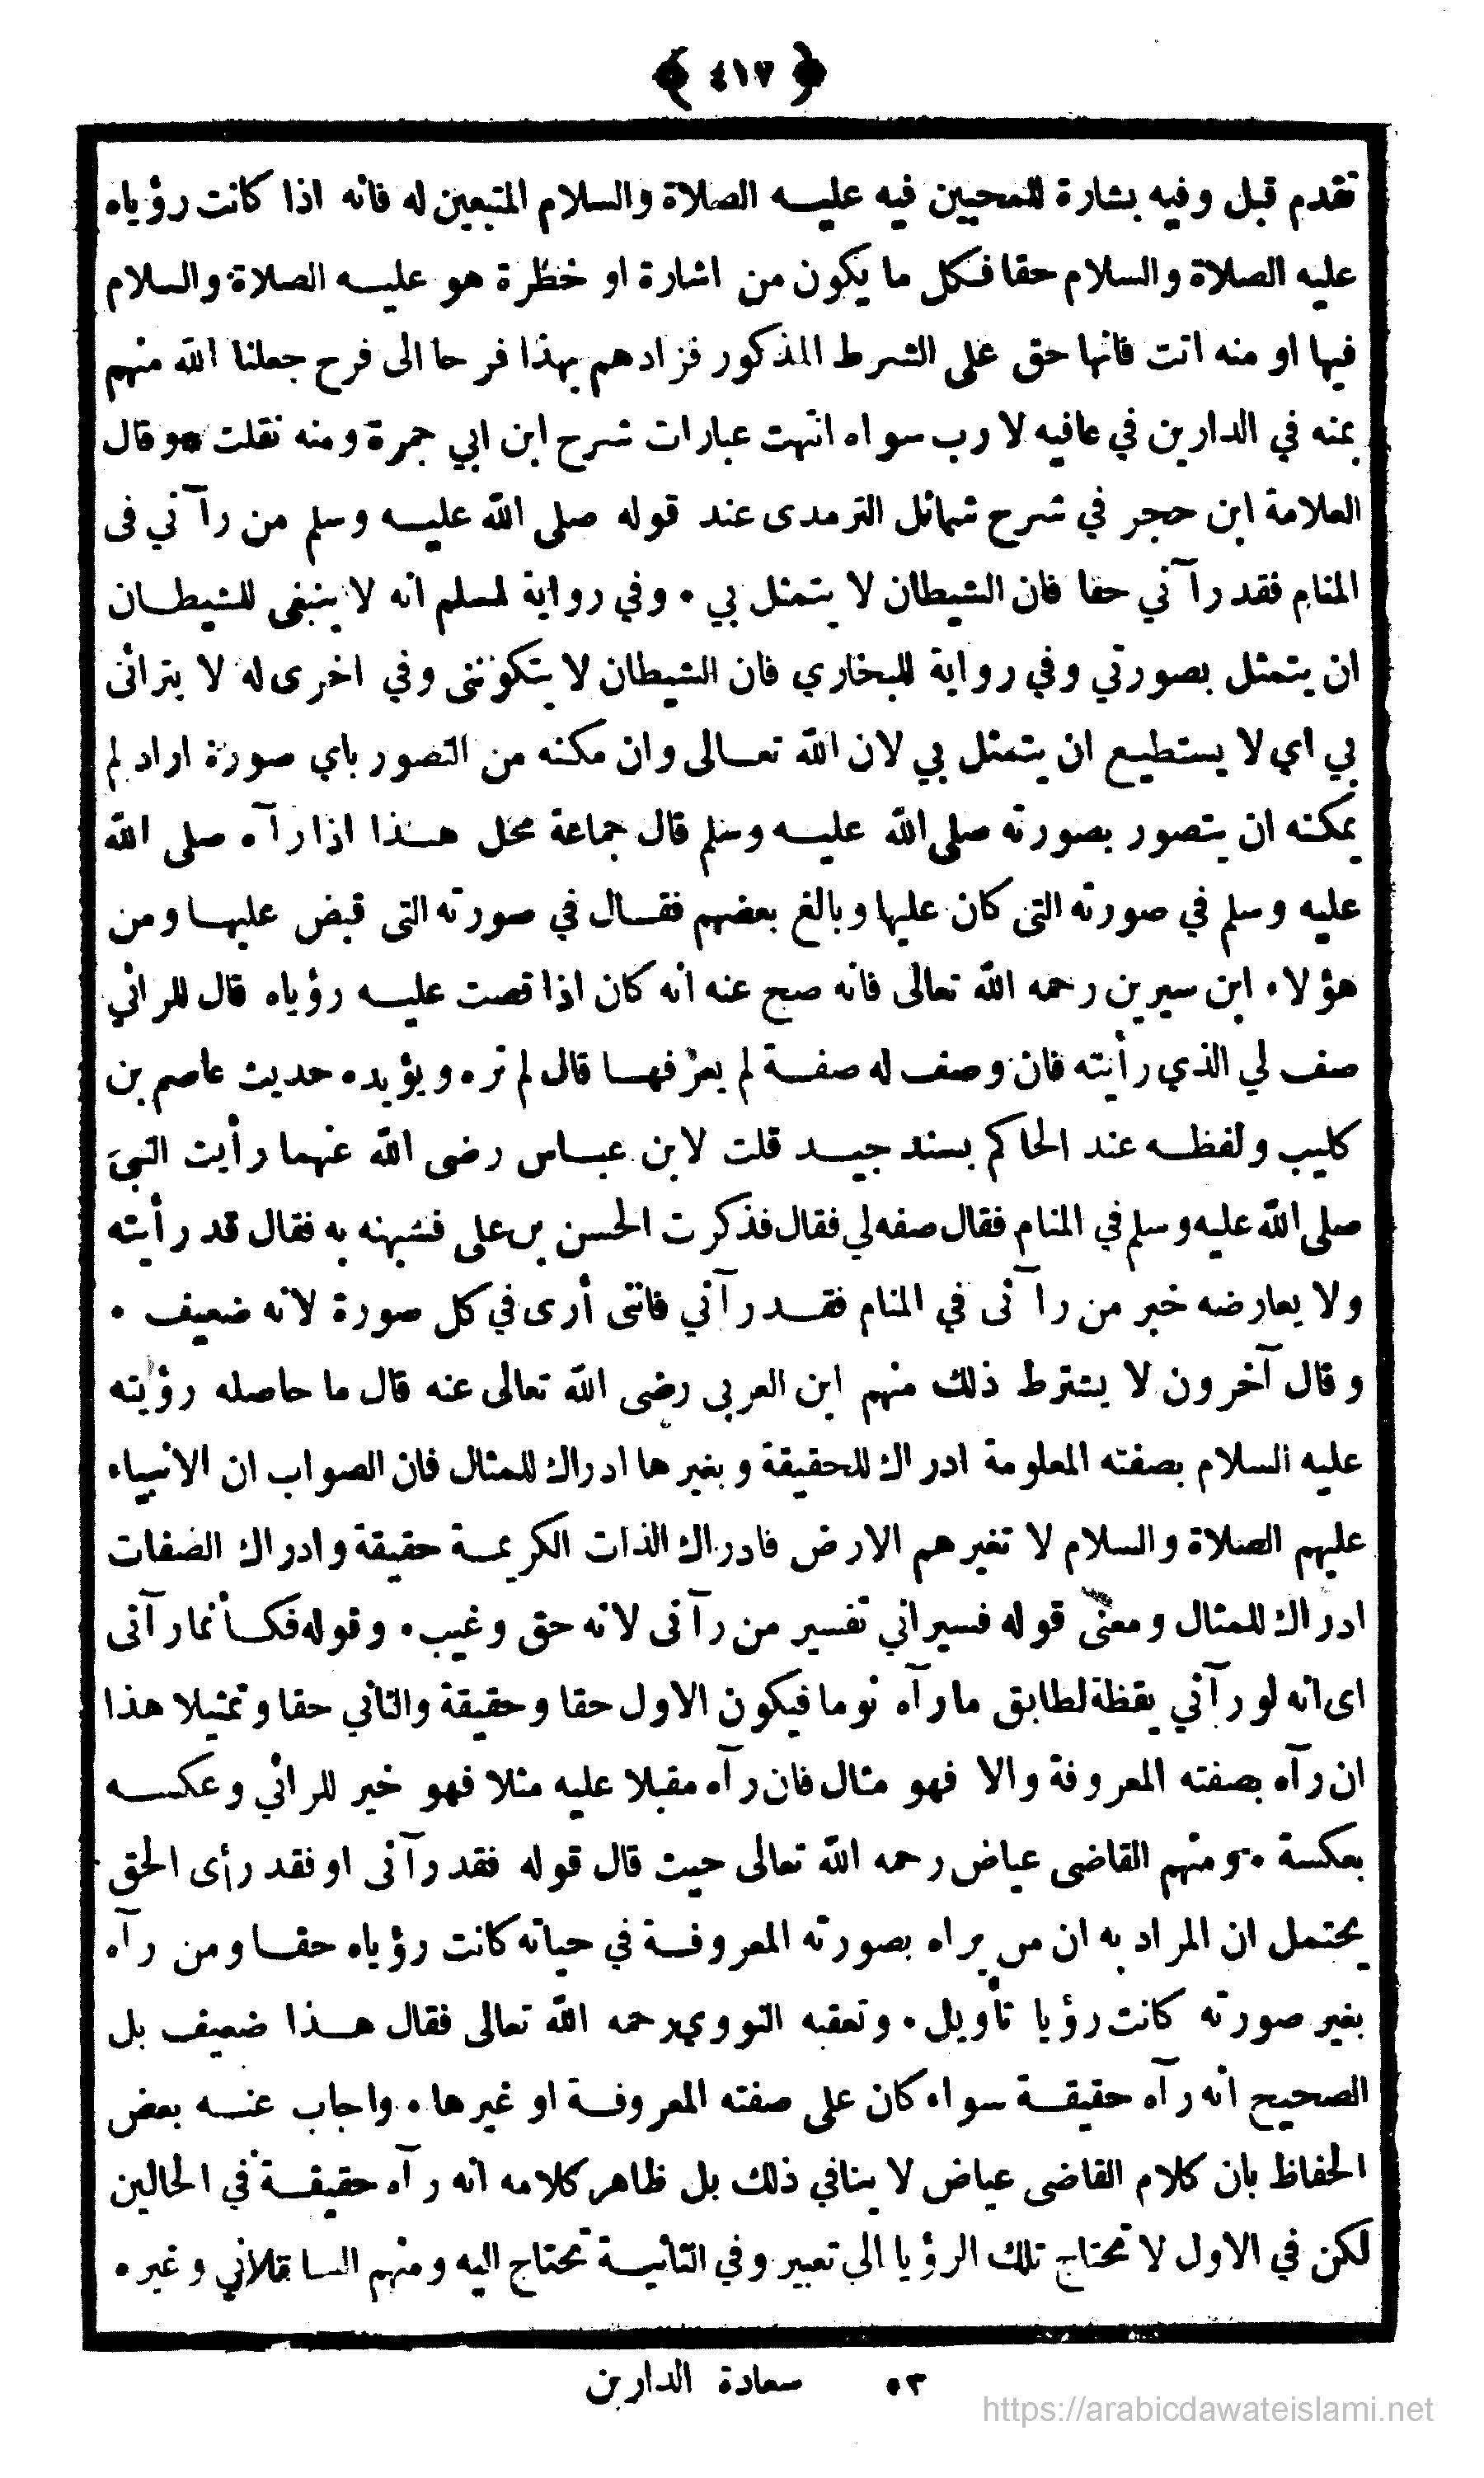 ﴿ ٤١٧ ﴾
تقدم قبل وفيه بشارة للمحبين فيه عليه الصلاة والسلام المتبعين له فانه اذا كانت رؤياه
عليه الصلاة والسلام حقا فكل ما يكون من اشارة او خطرة هو عليه الصلاة والسلام
فيها او منه اتت فانها حق على الشرط المذكور فزادهم بهذا فرحا الى فرح جعلنا الله منهم
بمنه في الدارين في عافيه لا رب سواه انتهت عبارات شرح ابن ابي جمرة ومنه نقلت * وقال
العلامة ابن حجر في شرح شمائل الترمدى عند قوله صلى الله عليه وسلم من رآني فى
المنام فقد رآني حقا فان الشيطان لا يتمثل بي ٠ وفي رواية لمسلم انه لا ينبغى للشيطان
ان يتمثل بصورتي وفي رواية للبخاري فان الشيطان لا يتكوننى وفي اخرى له لا يترائى
بي اي لا يستطيع ان يتمثل بي لان الله تعالى وان مكنه من التصور باي صورة اراد لم
يمكنه ان يتصور بصورته صلى الله عليه وسلم قال جماعة محل هذا اذا رآه صلى الله
عليه وسلم في صورته التى كان عليها وبالغ بعضهم فقال في صورته التى قبض عليها ومن
هؤلاء ابن سيرين رحمه الله تعالى فانه صح عنه انه كان اذا قصت عليه رؤياه قال للرائي
صف لي الذي رأيته فان وصف له صفة لم يعرفها قال لم تره ويؤيده حديث عاصم بن
كليب ولفظه عند الحاكم بسند جيد قلت لابن عباس رضى الله عنهما رأيت النبي
صلى الله عليه وسلم في المنام فقال صفه لي فقال فذكرت الحسن بن على فشبهته به فقال قد رأيته
ولا يعارضه خبر من رآنى في المنام فقد رآني فانى أرى في كل صورة لانه ضعيف ٠
وقال آخرون لا يشترط ذلك منهم ابن العربى رضى الله تعالى عنه قال ما حاصله رؤيته
عليه السلام بصفته المعلومة ادراك للحقيقة وبغيرها ادراك للمثال فان الصواب ان الانبياء
عليهم الصلاة والسلام لا تغيرهم الارض فادراك الذات الكريمة حقيقة وادراك الصفات
ادراك للمثال ومعنى قوله فسيراني تفسير من رآنى لانه حق وغيب ٠ وقوله فكأنما رآنى
اى انه لو رآني يقظة لطابق ما رآه نوما فيكون الاول حقا وحقيقة والثاني حقا وتمثيلا هذا
ان رآه بصفته المعروفة والا فهو مثال فان رآه مقبلا عليه مثلا فهو خير للرائي وعكسه
بعكسة ٠ ومنهم القاضى عياض رحمه الله تعالى حيت قال قوله فقد رآنى او فقد رأى الحق
يحتمل ان المراد به ان من يراه بصورته المعروفة في حياته كانت رؤياه حقا ومن رآه
بغير صورته كانت رؤيا تأويل ٠ وتعقبه النووي رحمه الله تعالى فقال هذا ضعيف بل
الصحيح انه رآه حقيقة سواء كان على صفته المعروفة او غيرها ٠ واجاب عنه بعض
الحفاظ بان كلام القاضى عياض لا ينافي ذلك بل ظاهر كلامه انه رآه حقيقة في الحالين
لكن في الاول لا تحتاج تلك الرؤيا الى تعبير وفي الثانية تحتاج اليه ومنهم الباقلاني وغيره
٥٣ سعادة الدارين
https://arabicdawateislami.net